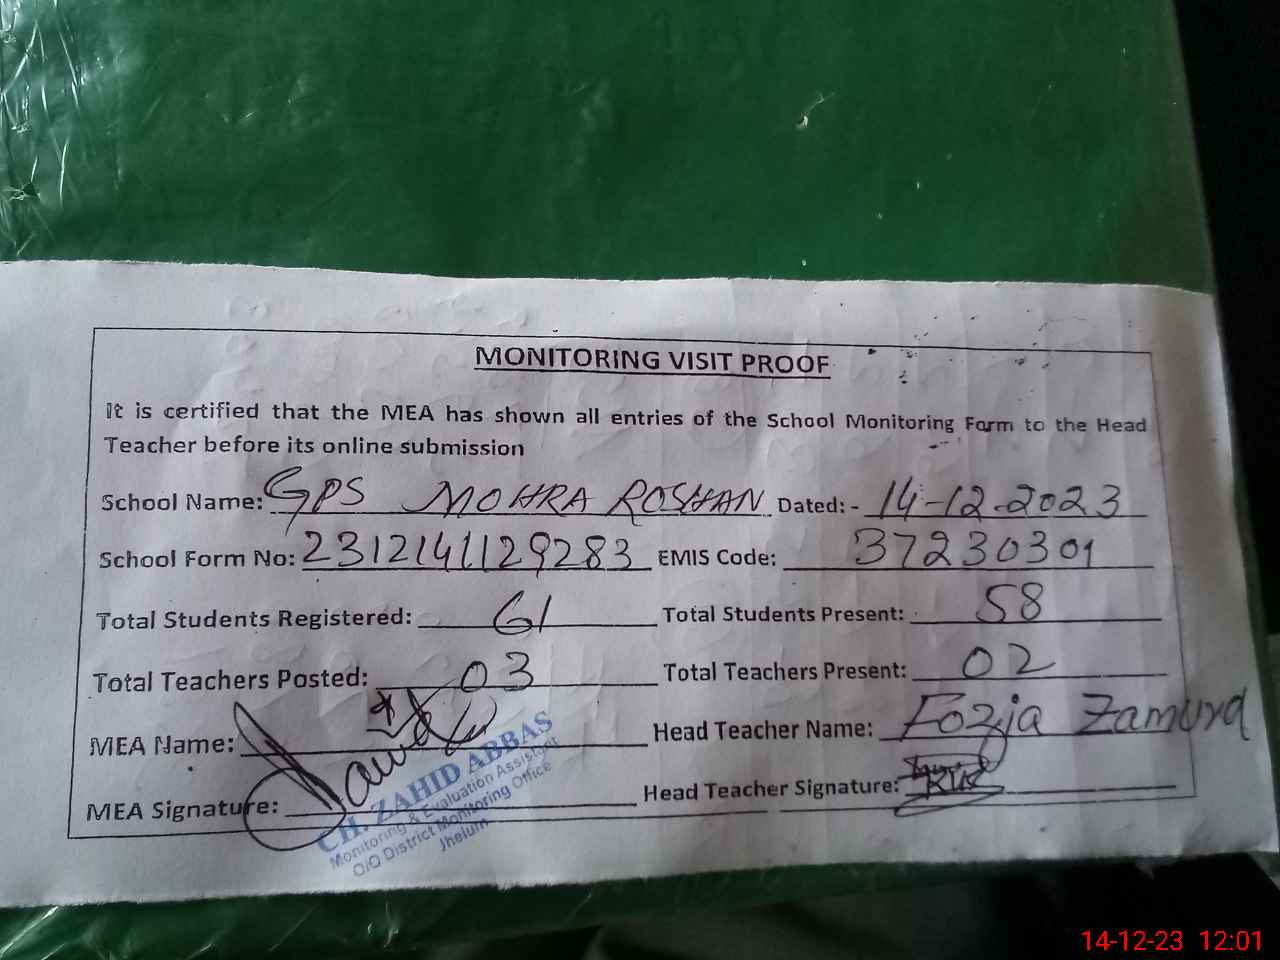 MONITORING VISIT PROOF
It is certified that the MEA has shown all entries of the School Monitoring Form to the Head
Teacher before its online submission
School Name: GPS MOHRA ROSHAN Dated: - 14-12-2023
School Form No: 2312141129283 EMIS Code: 37230301
Total Students Registered: 61 Total Students Present: 58
Total Teachers Posted: 03 Total Teachers Present: 02
MEA Name: Head Teacher Name: Fozia Zamurd
MEA Signature: Head Teacher Signature:
CH. ZAHID ABBAS
Monitoring & Evaluation Assistant
O/O District Monitoring Office
Jhelum
14-12-23 12:01